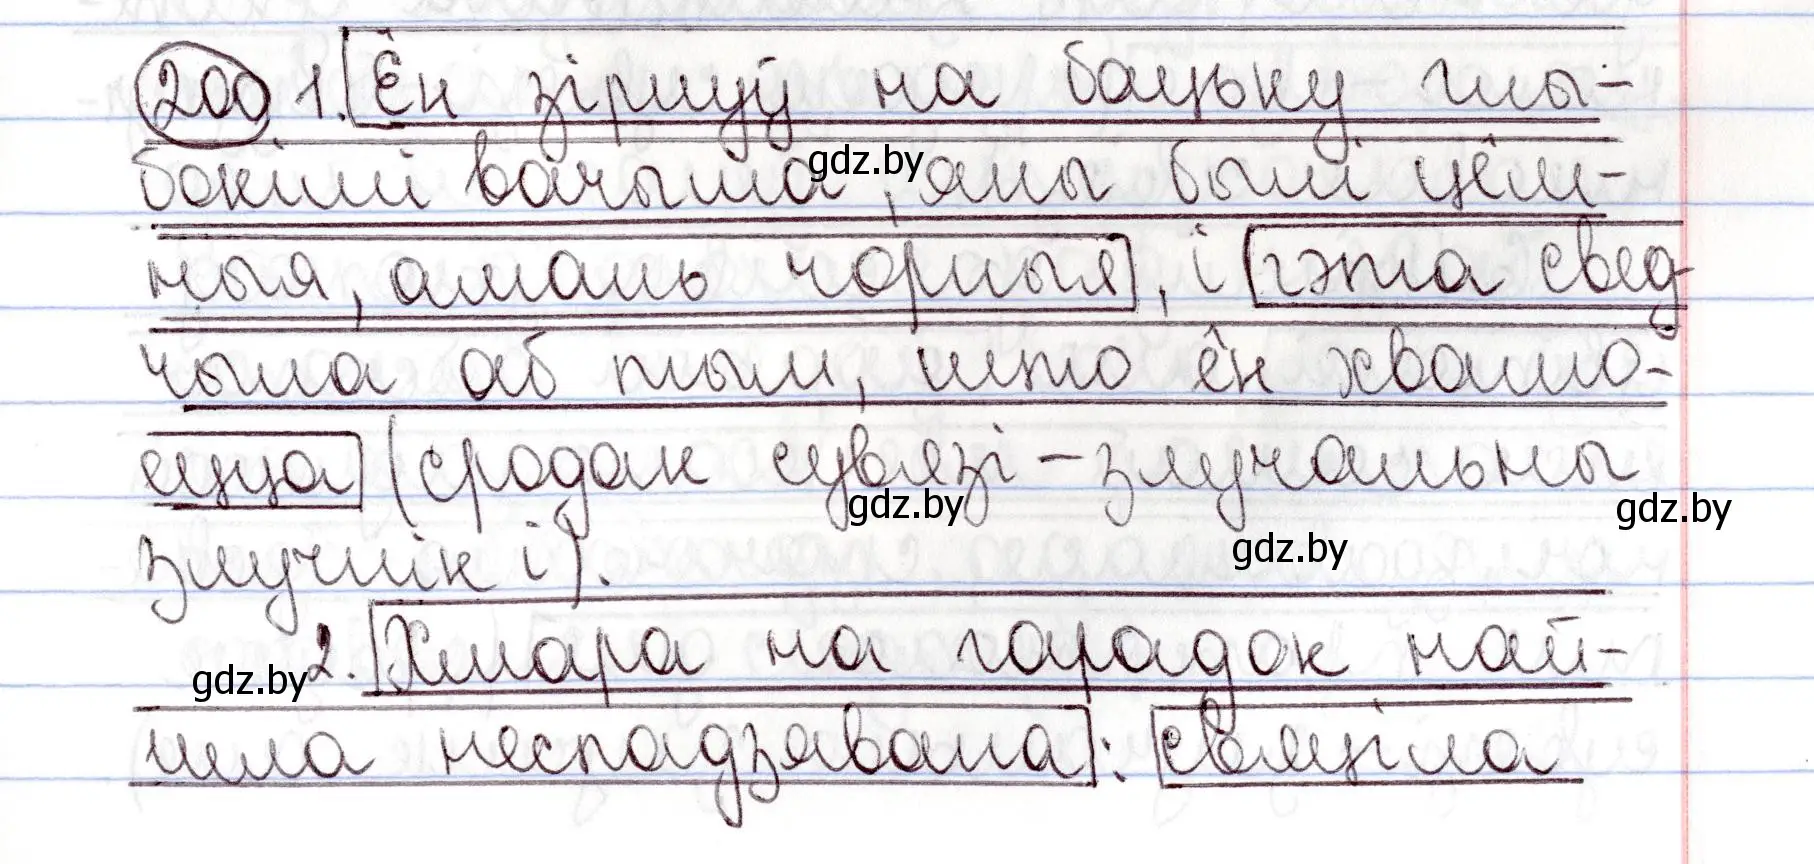 200 1. Ён зірнуў на бацьку глы-
бокімі вачыма, яны былі цём-
ныя, амаль чорныя, і гэта свед-
чыла аб тым, што ён хвалю-
ецца (сродак сувязі – злучальны
злучнік і).
2. Хмара на гарадок най-
шла неспадзявана: свяціла
gdz.by
gdz.by
gdz.by
gdz.by
gdz.by